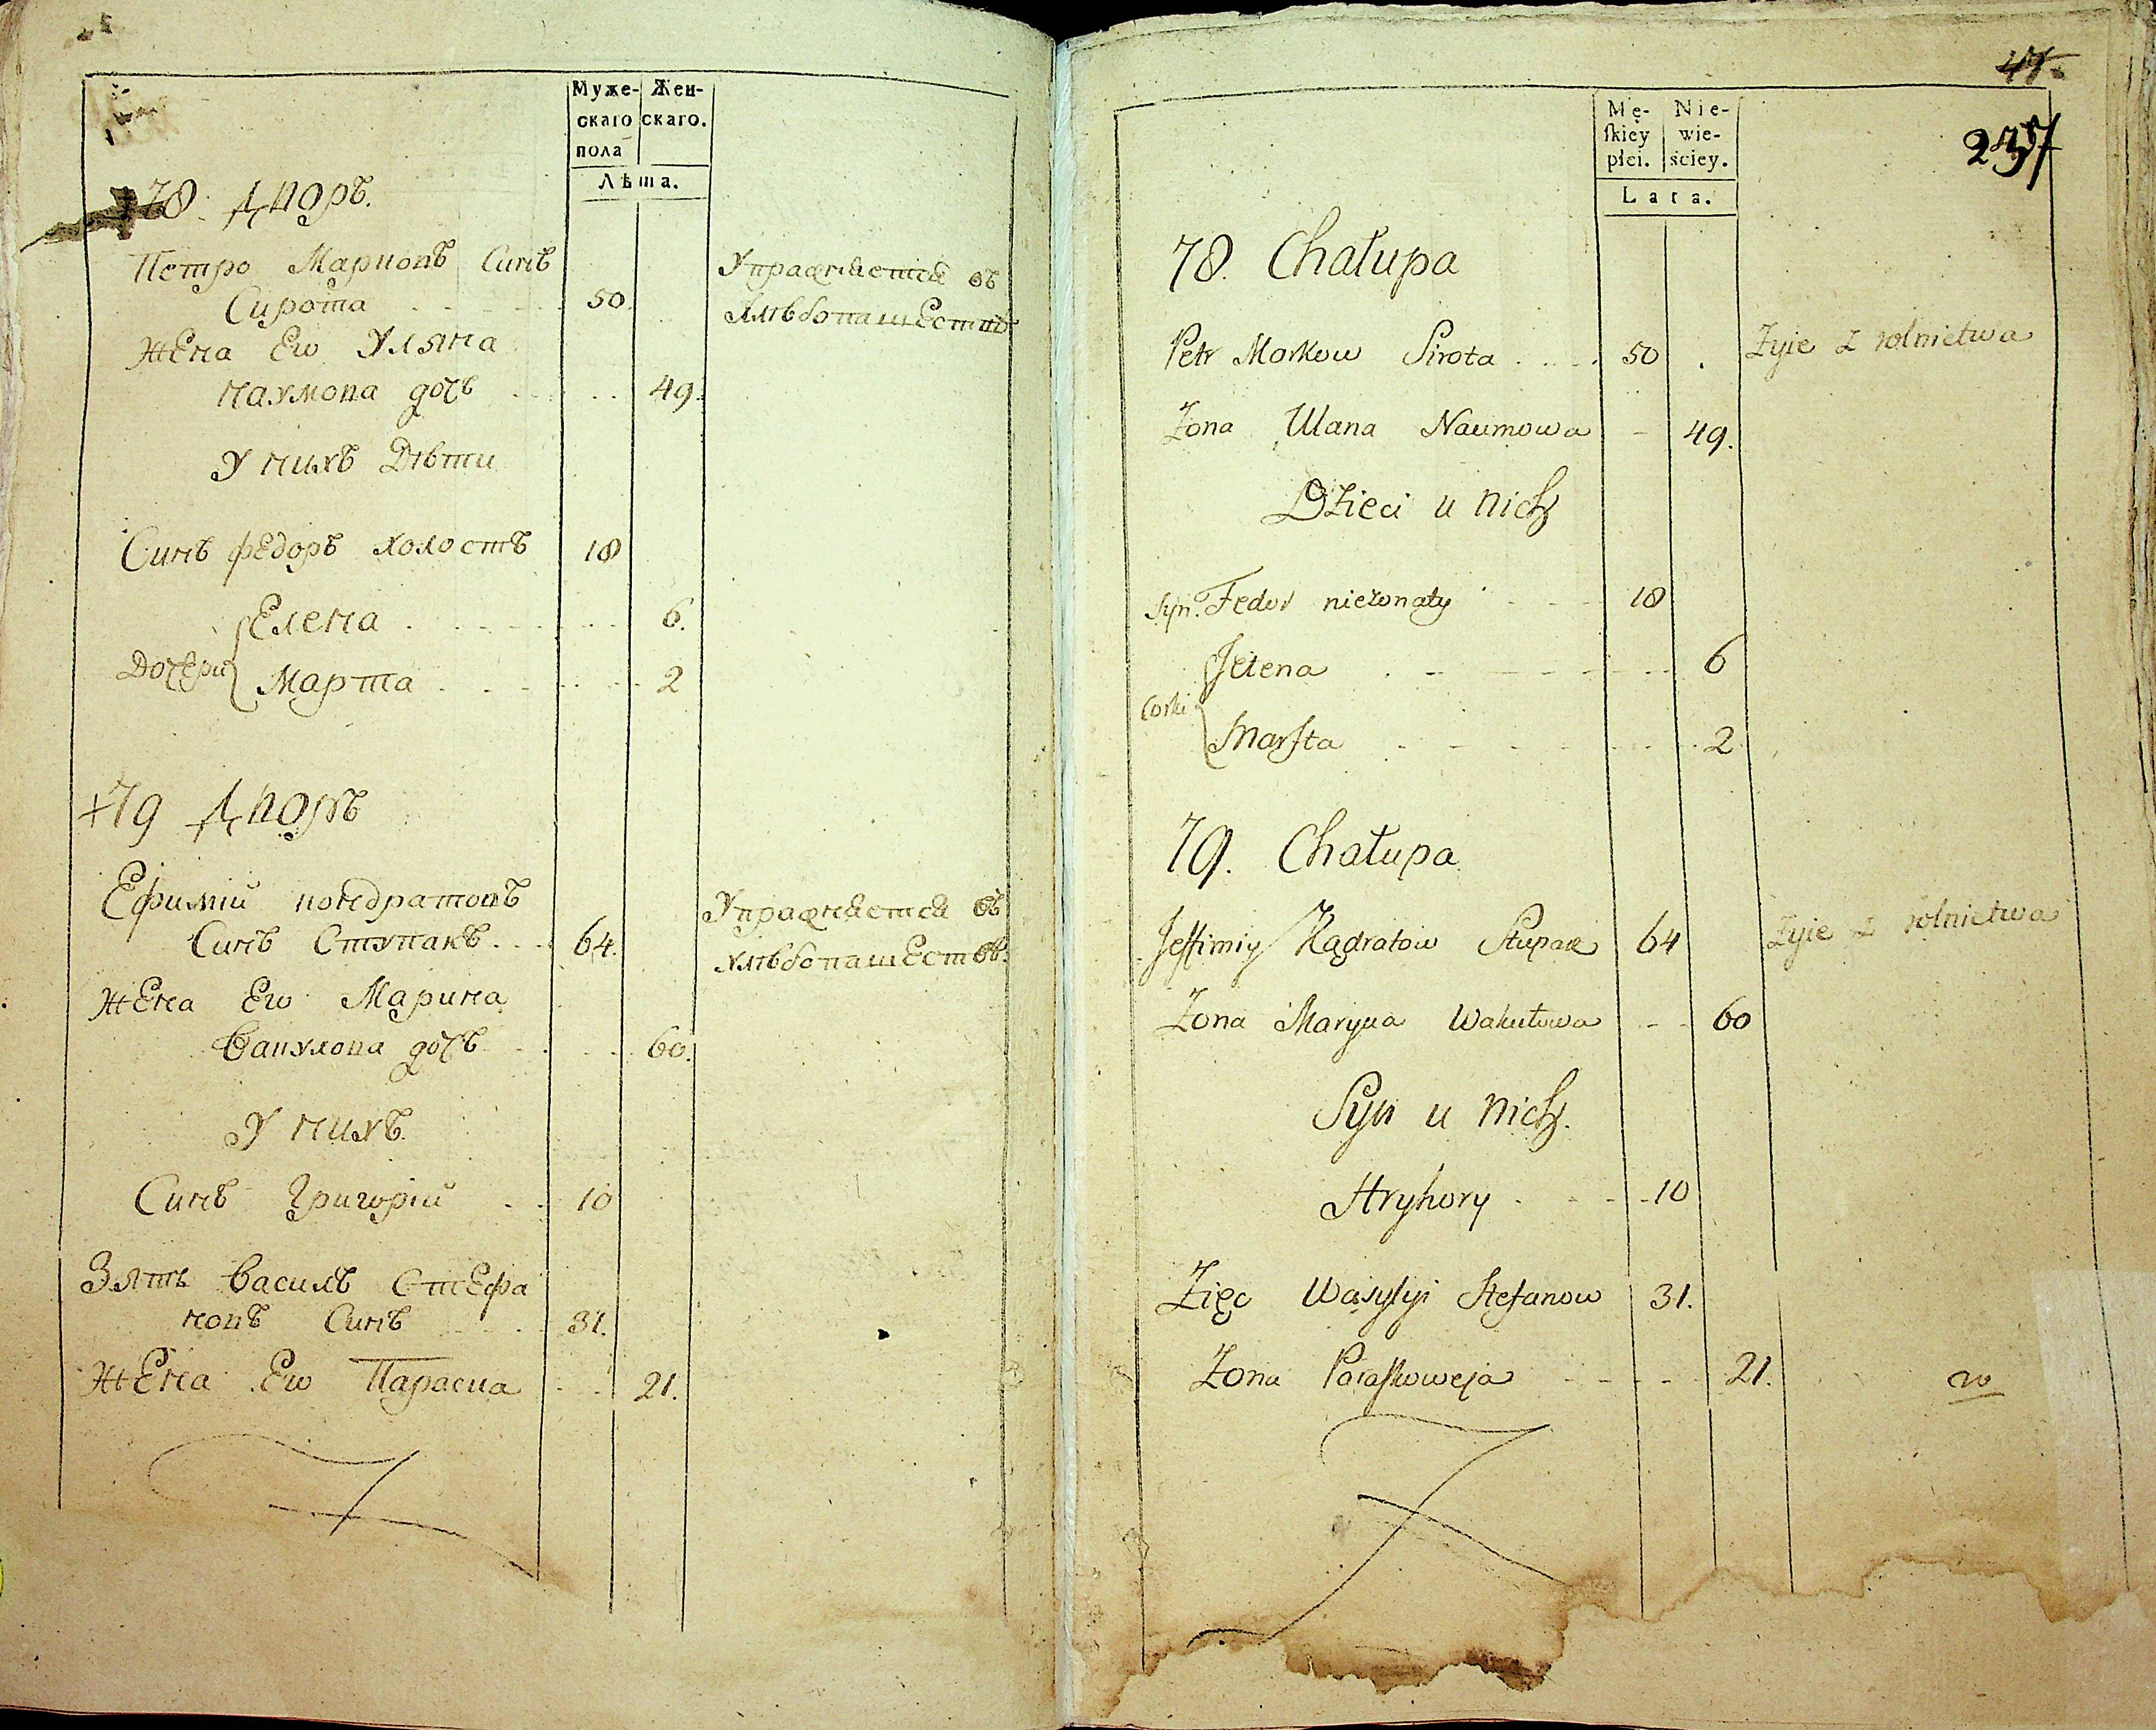 Муже-
скаго
пола
Жен-
скаго.
Лѣта.
78. Дворъ.
Петро Марковъ Синъ
Сирота 50.
Упражняется въ
хлѣбопашествѣ
Жена Его Уляна
Наумова дочь 49.
У нихъ Дѣти
Синъ Федоръ холостъ 18
Дочери
Елена 6.
Марта 2
+79 Дворъ
Ефимій Кондратовъ
Синъ Ступакъ 64.
Упражняется въ
хлѣбопашествѣ.
Жена Его Марина
Вакулова дочь 60.
У нихъ.
Синъ Григорій 10
Зять Василь Стефа
новъ Синъ 31.
Жена Его Параска 21.
47.
237
Mę-
ſkiey
płci.
Nie-
wie-
ściey.
Lata.
78. Chałupa
Petr Markow Sirota 50 Żyie z rolnictwa
Żona Ulana Naumowa - 49.
Dzieci u nich
Syn. Fedor nieżonaty 18
Corki
Jelena 6
Marfta 2
79. Chałupa
Jeffimiy Kądratow Stupak 64 Żyie z rolnictwa
Żona Maryna Wakułowa - 60
Syn u nich.
Hryhory 10
Zięc Wasylyi Stefanow 31.
Żona Paraskoweja 21.